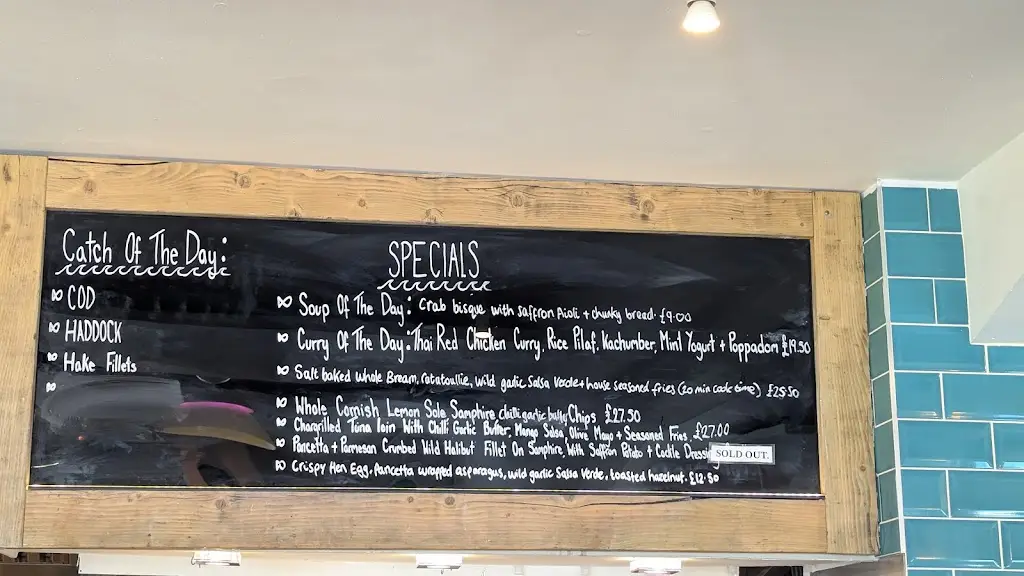 Catch Of The Day:
COD
HADDOCK
Hake Fillets
SPECIALS
Soup Of The Day: Crab bisque with Saffron Aioli + chunky bread. £9.00
Curry Of The Day: Thai Red Chicken Curry, Rice Pilaf, Kachumber, Mint Yogurt + Poppadom £19.50
Salt baked whole Bream, ratatoullie, wild garlic Salsa Verde + house seasoned fries (20 min cook time) £25.50
Whole Cornish Lemon Sole Samphire chilli garlic butter Chips £27.50
Chargrilled Tuna Loin With Chilli Garlic Butter Mango Salsa, Olive Mayo + Seasoned Fries £27.00
Pancetta + Parmesan Crumbed Wild Halibut Fillet On Samphire With Saffron Potato + Cockle Dressi
SOLD OUT.
Crispy Hen Egg, Pancetta wrapped asparagus, wild garlic Salsa Verde, toasted hazelnut. £12.50